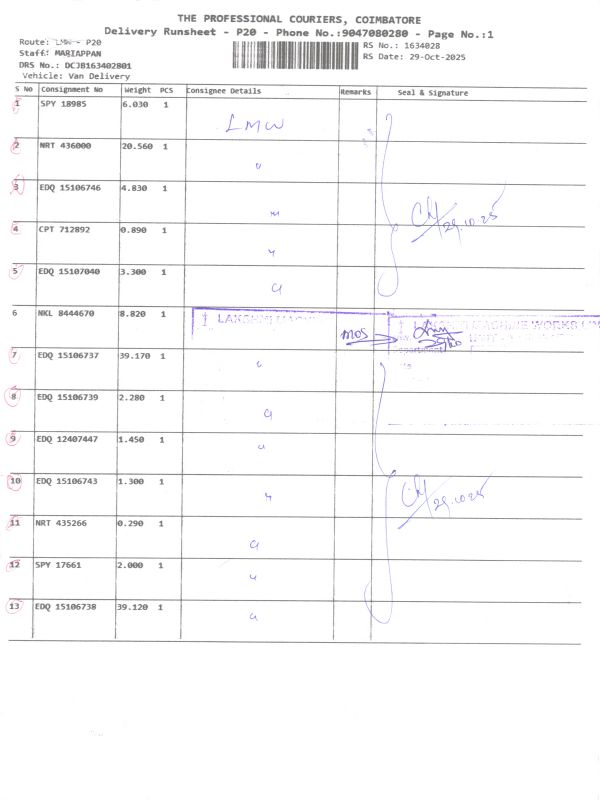 THE PROFESSIONAL COURIERS, COIMBATORE
Delivery Runsheet - P20 - Phone No.:9047080280 - Page No.:1
Route: LMW - P20
RS No.: 1634028
Staff: MARIAPPAN
RS Date: 29-Oct-2025
DRS No.: DCJB163402801
Vehicle: Van Delivery
S No Consignment No Weight PCS Consignee Details Remarks Seal & Signature
1 SPY 18985 6.030 1
LMW
2 NRT 436000 20.560 1
"
3 EDQ 15106746 4.830 1
29.10.25
4 CPT 712892 0.890 1
5 EDQ 15107040 3.300 1
6 NKL 8444670 8.820 1 LAKSHMI MACHINE WORKS LIM
MOS
7 EDQ 15106737 39.170 1
8 EDQ 15106739 2.280 1
9 EDQ 12407447 1.450 1
10 EDQ 15106743 1.300 1
29.10.25
11 NRT 435266 0.290 1
12 SPY 17661 2.000 1
13 EDQ 15106738 39.120 1